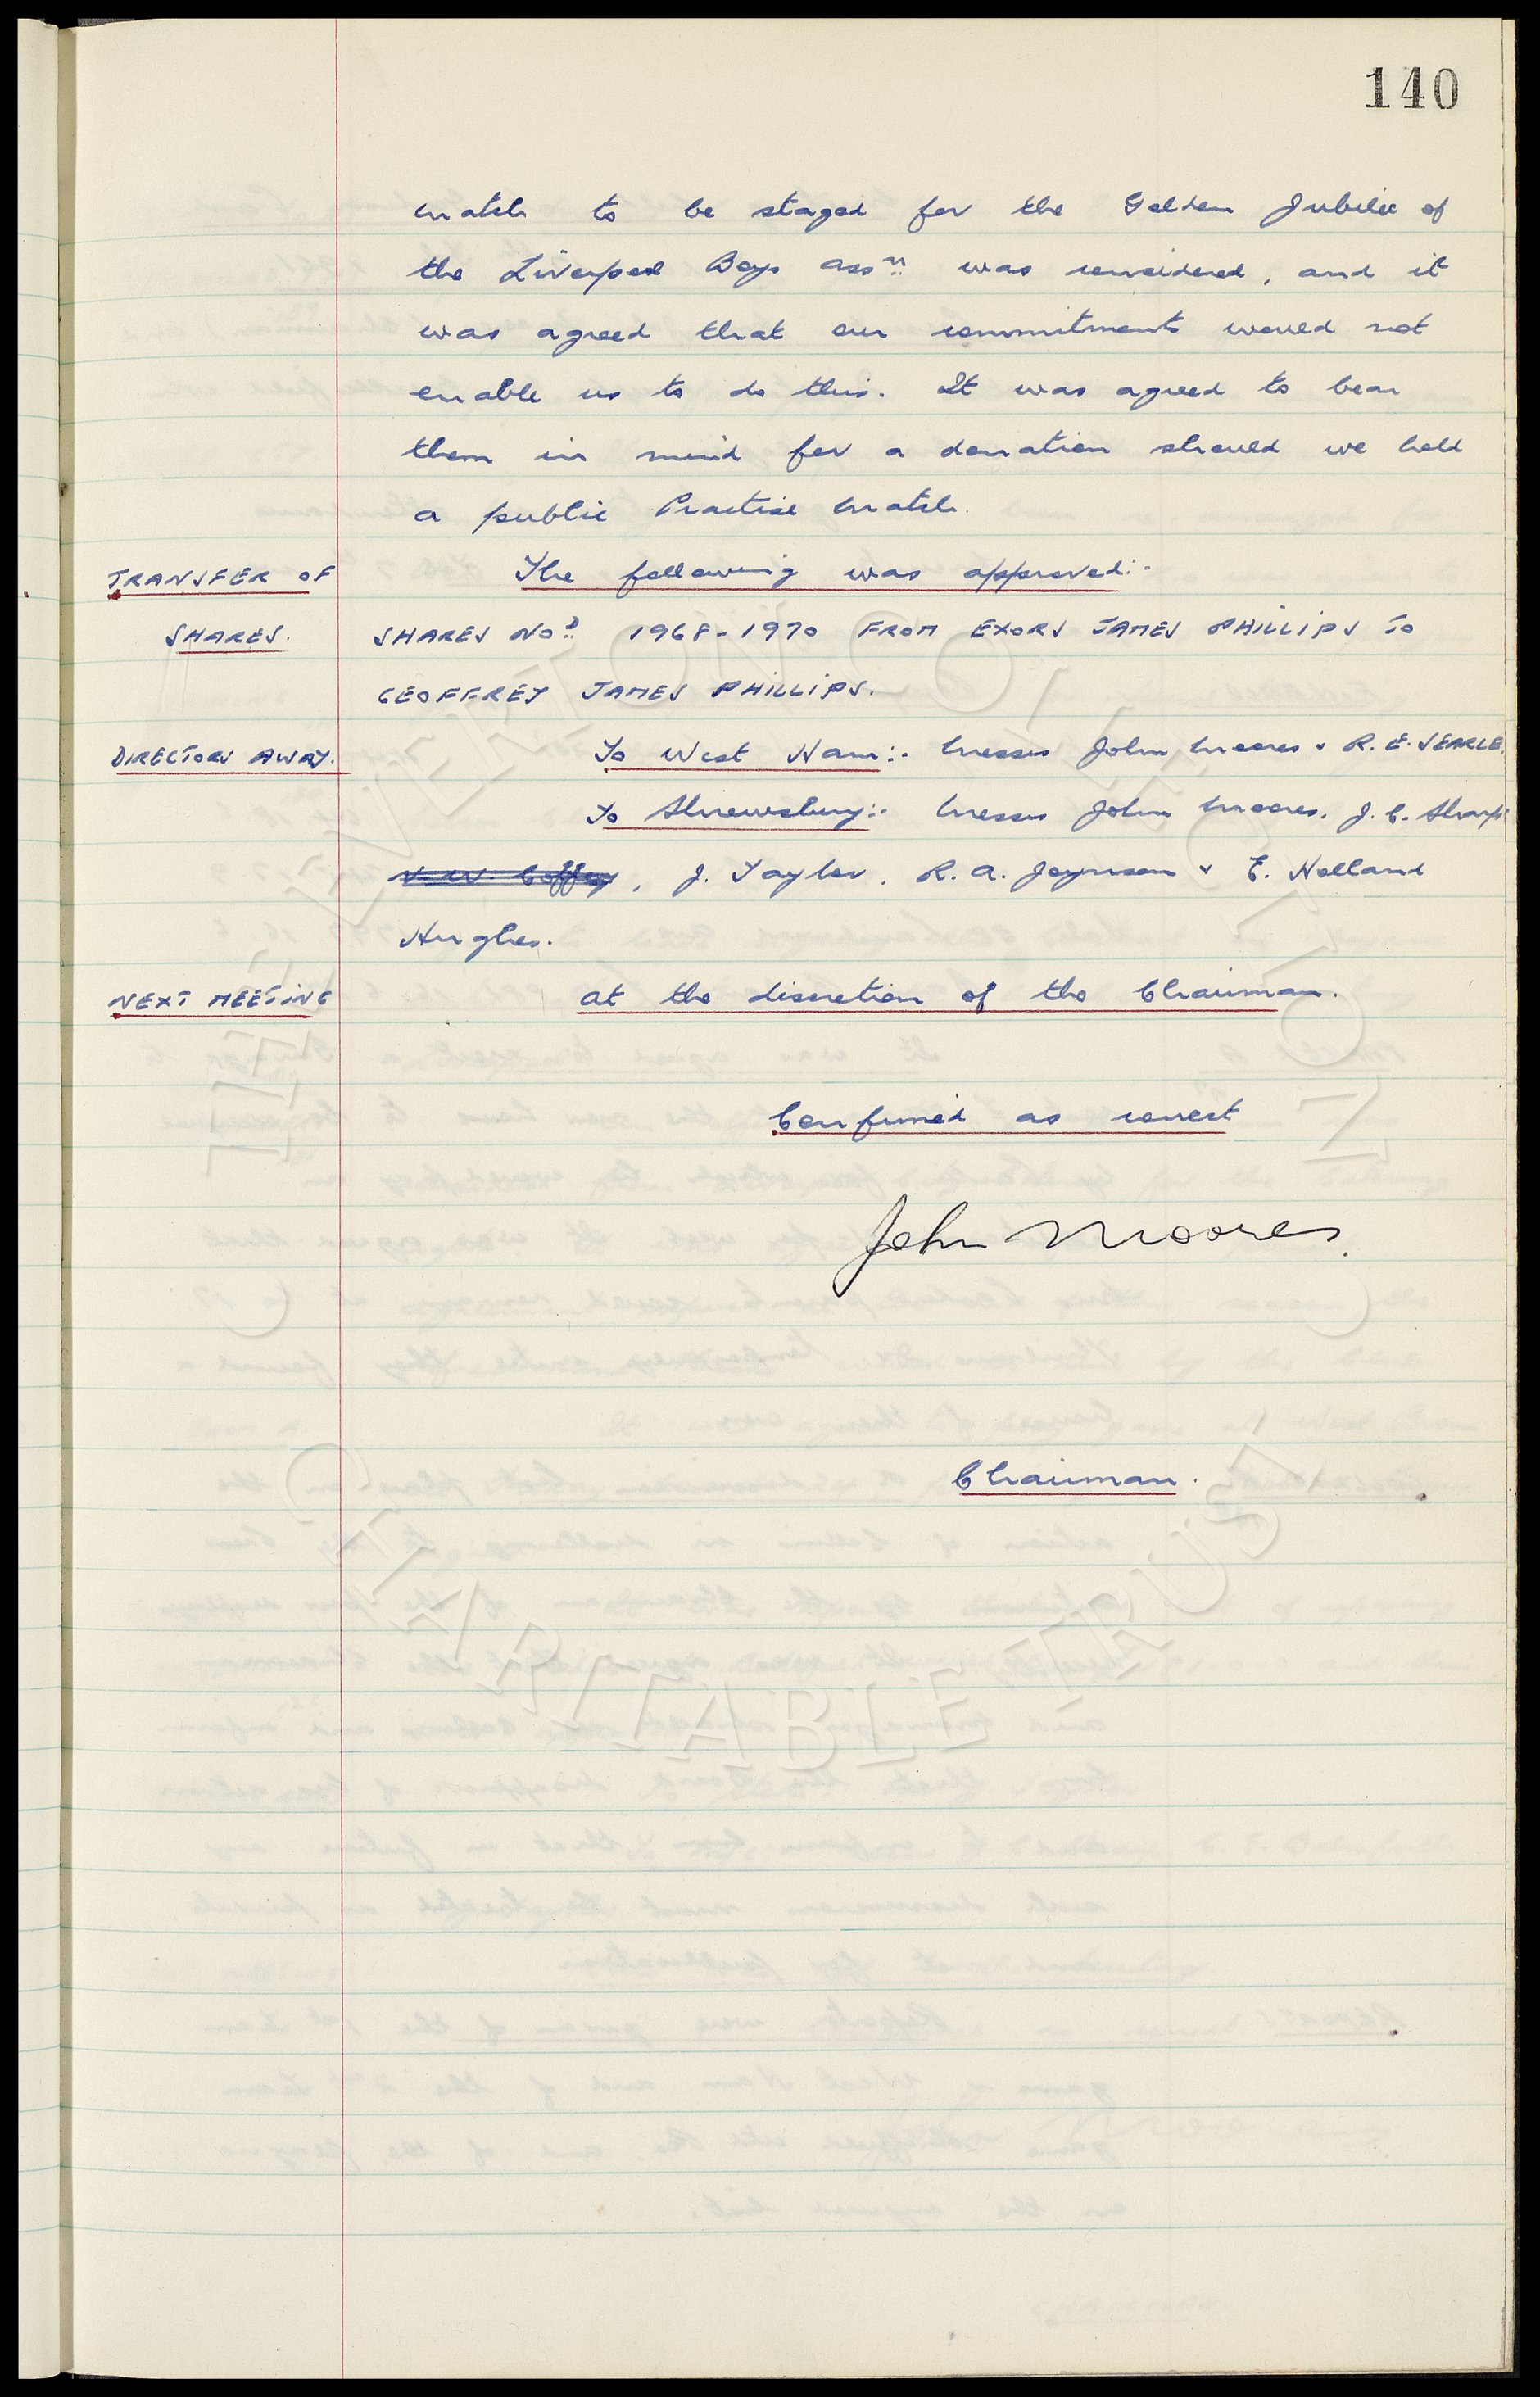 140
match to be staged for the Golden Jubilee of
the Liverpool Boys Assn was considered, and it
was agreed that our commitments would not
enable us to do this. It was agreed to bear
them in mind for a donation should we hold
a public Practise Match.
TRANSFER OF The following was approved:-
SHARES. SHARES NOS 1968-1970 FROM EXORS JAMES PHILLIPS TO
GEOFFREY JAMES PHILLIPS.
DIRECTORS AWAY. To West Ham:- Messrs John Moores & R.E. SEARLE.
To Shrewsbury:- Messrs John Moores, J.C. Sharp
N W Coffey, J. Taylor, R.A. Joynson & E. Holland
Hughes.
NEXT MEETING At the discretion of the Chairman.
Confirmed as correct
John Moores.
Chairman.
THE EVERTON COLLECTION
CHARITABLE TRUST